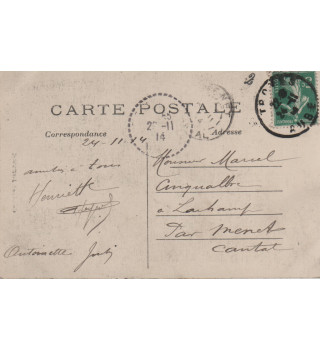 CARTE POSTALE
Correspondance
Adresse
25-11
14
24-11-14
amitiés à tous
Henriette
Antoinette
Monsieur Marcel
à Lachamp
Par Menet
Cantal